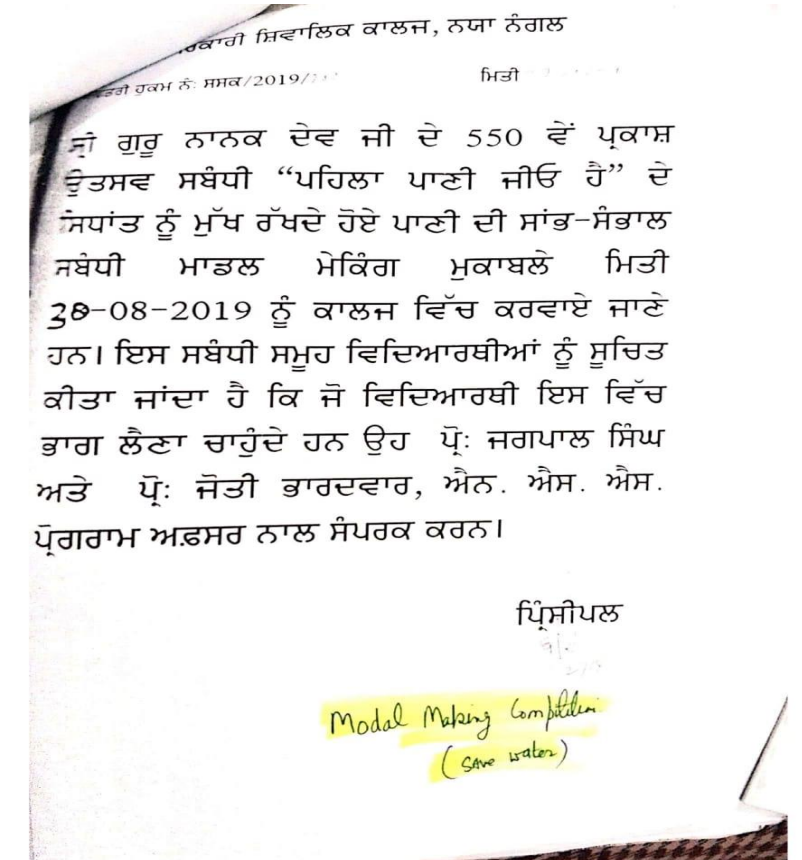 ਸ਼ਿਵਾਲਿਕ ਕਾਲਜ, ਨਯਾ ਨੰਗਲ
ਹੁਕਮ ਨੰ: ਸਸਕ/2019/ ਮਿਤੀ
ਸ੍ਰੀ ਗੁਰੂ ਨਾਨਕ ਦੇਵ ਜੀ ਦੇ 550 ਵੇਂ ਪ੍ਰਕਾਸ਼
ਉਤਸਵ ਸਬੰਧੀ “ਪਹਿਲਾ ਪਾਣੀ ਜੀਓ ਹੈ” ਦੇ
ਸਿਧਾਂਤ ਨੂੰ ਮੁੱਖ ਰੱਖਦੇ ਹੋਏ ਪਾਣੀ ਦੀ ਸਾਂਭ-ਸੰਭਾਲ
ਸਬੰਧੀ ਮਾਡਲ ਮੇਕਿੰਗ ਮੁਕਾਬਲੇ ਮਿਤੀ
30-08-2019 ਨੂੰ ਕਾਲਜ ਵਿੱਚ ਕਰਵਾਏ ਜਾਣੇ
ਹਨ। ਇਸ ਸਬੰਧੀ ਸਮੂਹ ਵਿਦਿਆਰਥੀਆਂ ਨੂੰ ਸੂਚਿਤ
ਕੀਤਾ ਜਾਂਦਾ ਹੈ ਕਿ ਜੋ ਵਿਦਿਆਰਥੀ ਇਸ ਵਿੱਚ
ਭਾਗ ਲੈਣਾ ਚਾਹੁੰਦੇ ਹਨ ਉਹ ਪ੍ਰੋ: ਜਗਪਾਲ ਸਿੰਘ
ਅਤੇ ਪ੍ਰੋ: ਜੋਤੀ ਭਾਰਦਵਾਰ, ਐਨ. ਐਸ. ਐਸ.
ਪ੍ਰੋਗਰਾਮ ਅਫ਼ਸਰ ਨਾਲ ਸੰਪਰਕ ਕਰਨ।
ਪ੍ਰਿੰਸੀਪਲ
Modal Making Competition
(save water)